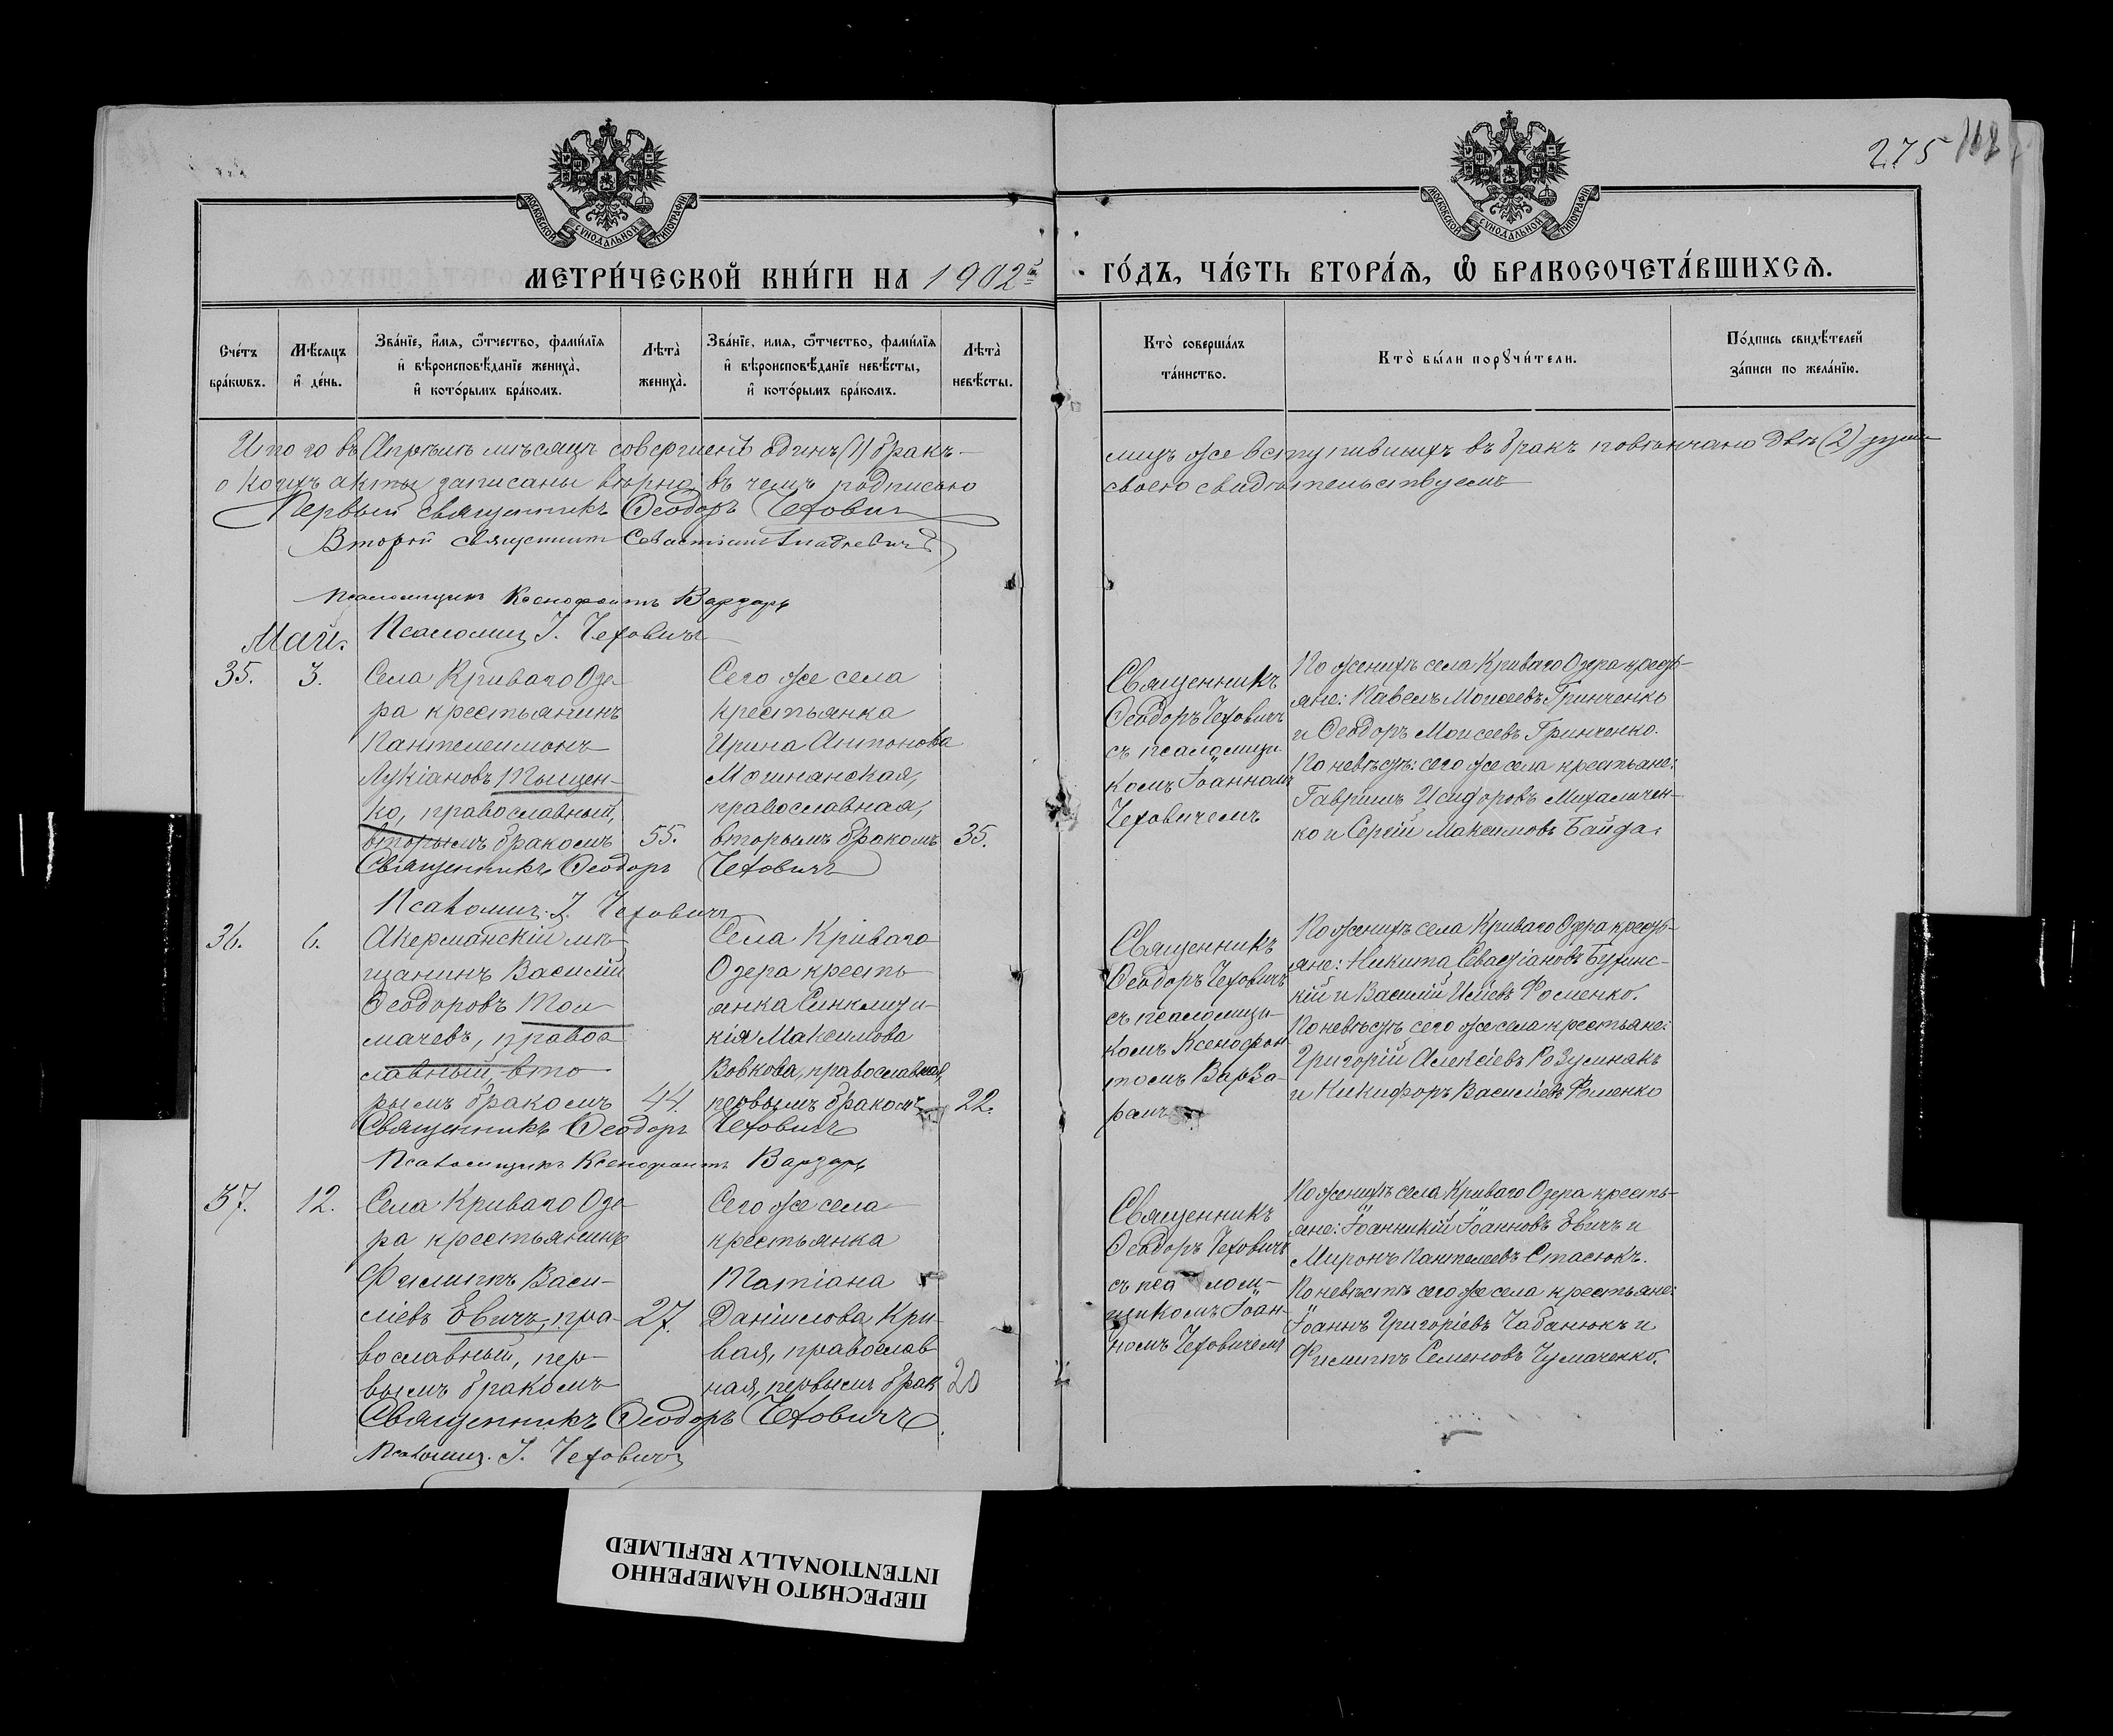 275
МОСКОВСКОЙ СѴНОДАЛЬНОЙ ТИПОГРАФІИ
МОСКОВСКОЙ СѴНОДАЛЬНОЙ ТИПОГРАФІИ
МЕТРИ́ЧЕСКОЙ КНИ́ГИ НА 1902й
ГО́ДЪ, ЧА́СТЬ ВТОРА́Ѧ, Ѽ БРАКОСОЧЕТА́ВШИХСѦ.
Сче́тъ бра́кѡвъ.
Мѣ́сяцъ и҆ де́нь.
Зва́нїе, и҆́мѧ, ѻ҆́тчество, фами́лїѧ и҆ вѣроисповѣ́данїе жениха̀, и҆ кото́рымъ бра́комъ.
Лѣта̀ жениха̀.
Зва́нїе, имѧ, ѻ҆́тчество, фами́лїѧ и҆ вѣроисповѣ́данїе невѣ́сты, и҆ кото́рымъ бра́комъ.
Лѣта̀ невѣ́сты.
Кто̀ соверша́лъ та́инство.
Кто̀ бы́ли порꙋчи́тели.
По́дпись свидѣ́телей за́писи по жела́нїю.
Итого въ Апрѣлѣ мѣсяцѣ совершенъ одинъ (1) бракъ
лицъ же вступившихъ въ бракъ повѣнчано двѣ (2) души
о коихъ акты записаны вѣрно, въ чемъ подписью
своею свидѣтельствуемъ
Первый священникъ Ѳеодоръ Чехович
Второй священник Севастіан
Псаломщикъ Ксенофонтъ Варзарь
Псаломщ. І. Чеховичъ
Май.
35.
3.
Села Криваго Озе-
ра крестьянинъ
Пантелеимонъ
Лукіановъ Тыщен-
ко, православный,
вторымъ бракомъ
55.
Сего же села
крестьянка
Ирина Антонова
Могинанская,
православная,
вторымъ бракомъ
35.
Священникъ
Ѳеодоръ Чеховичъ
съ псаломщи-
комъ Іоанномъ
Чеховичемъ
По женихѣ села Криваго Озера кресть-
яне: Павелъ Моисеевъ Гринченко
и Ѳеодоръ Моисеевъ Гринченко.
По невѣстѣ: сего же села крестьяне:
Гавриилъ Исидоровъ Михаличен-
ко и Сергій Максимовъ Байда.
Священникъ Ѳеодоръ Чеховичъ
Псаломщ. І. Чеховичъ
36.
6.
Акерманскій мѣ-
щанинъ Василій
Ѳеодоровъ Тол-
мачевъ, правос-
лавный вто-
рымъ бракомъ
44.
Села Криваго
Озера кресть-
янка Синклити-
кія Максимова
Вовкова, православная,
первымъ бракомъ
22.
Священникъ
Ѳеодоръ Чеховичъ
съ псаломщи-
комъ Ксенофон-
томъ Варза-
ремъ
По женихѣ села Криваго Озера кресть-
яне: Никита Севастіановъ
и Василій Фоменко.
По невѣстѣ сего же села крестьяне:
Григорій Алексіевъ Розумнякъ
и Никифоръ Василіевъ Фоменко
Священникъ Ѳеодоръ Чеховичъ
Псаломщикъ Ксенофонтъ Варзарь
37.
12.
Села Криваго Озе-
ра крестьянинъ
Филиппъ Васи-
ліевъ Евичъ, пра-
вославный, пер-
вымъ бракомъ
27.
Сего же села
крестьянка
Татіана
Даніилова Кри-
вая, православ-
ная, первымъ брак
20
Священникъ
Ѳеодоръ Чеховичъ
съ псаломщ-
щикомъ Іоан-
номъ Чеховичемъ
По женихѣ села Криваго Озера кресть-
яне: Іоанникій Іоанновъ Евичъ и
Миронъ Пантелеевъ Стасюкъ.
По невѣстѣ сего же села крестьяне:
Іоаннъ Григоріевъ Чабанюкъ и
Филиппъ Семеновъ Чумаченко.
Священникъ Ѳеодоръ Чеховичъ
Псаломщ. І. Чеховичъ
ПЕРЕСНЯТО НАМЕРЕННО
INTENTIONALLY REFILMED